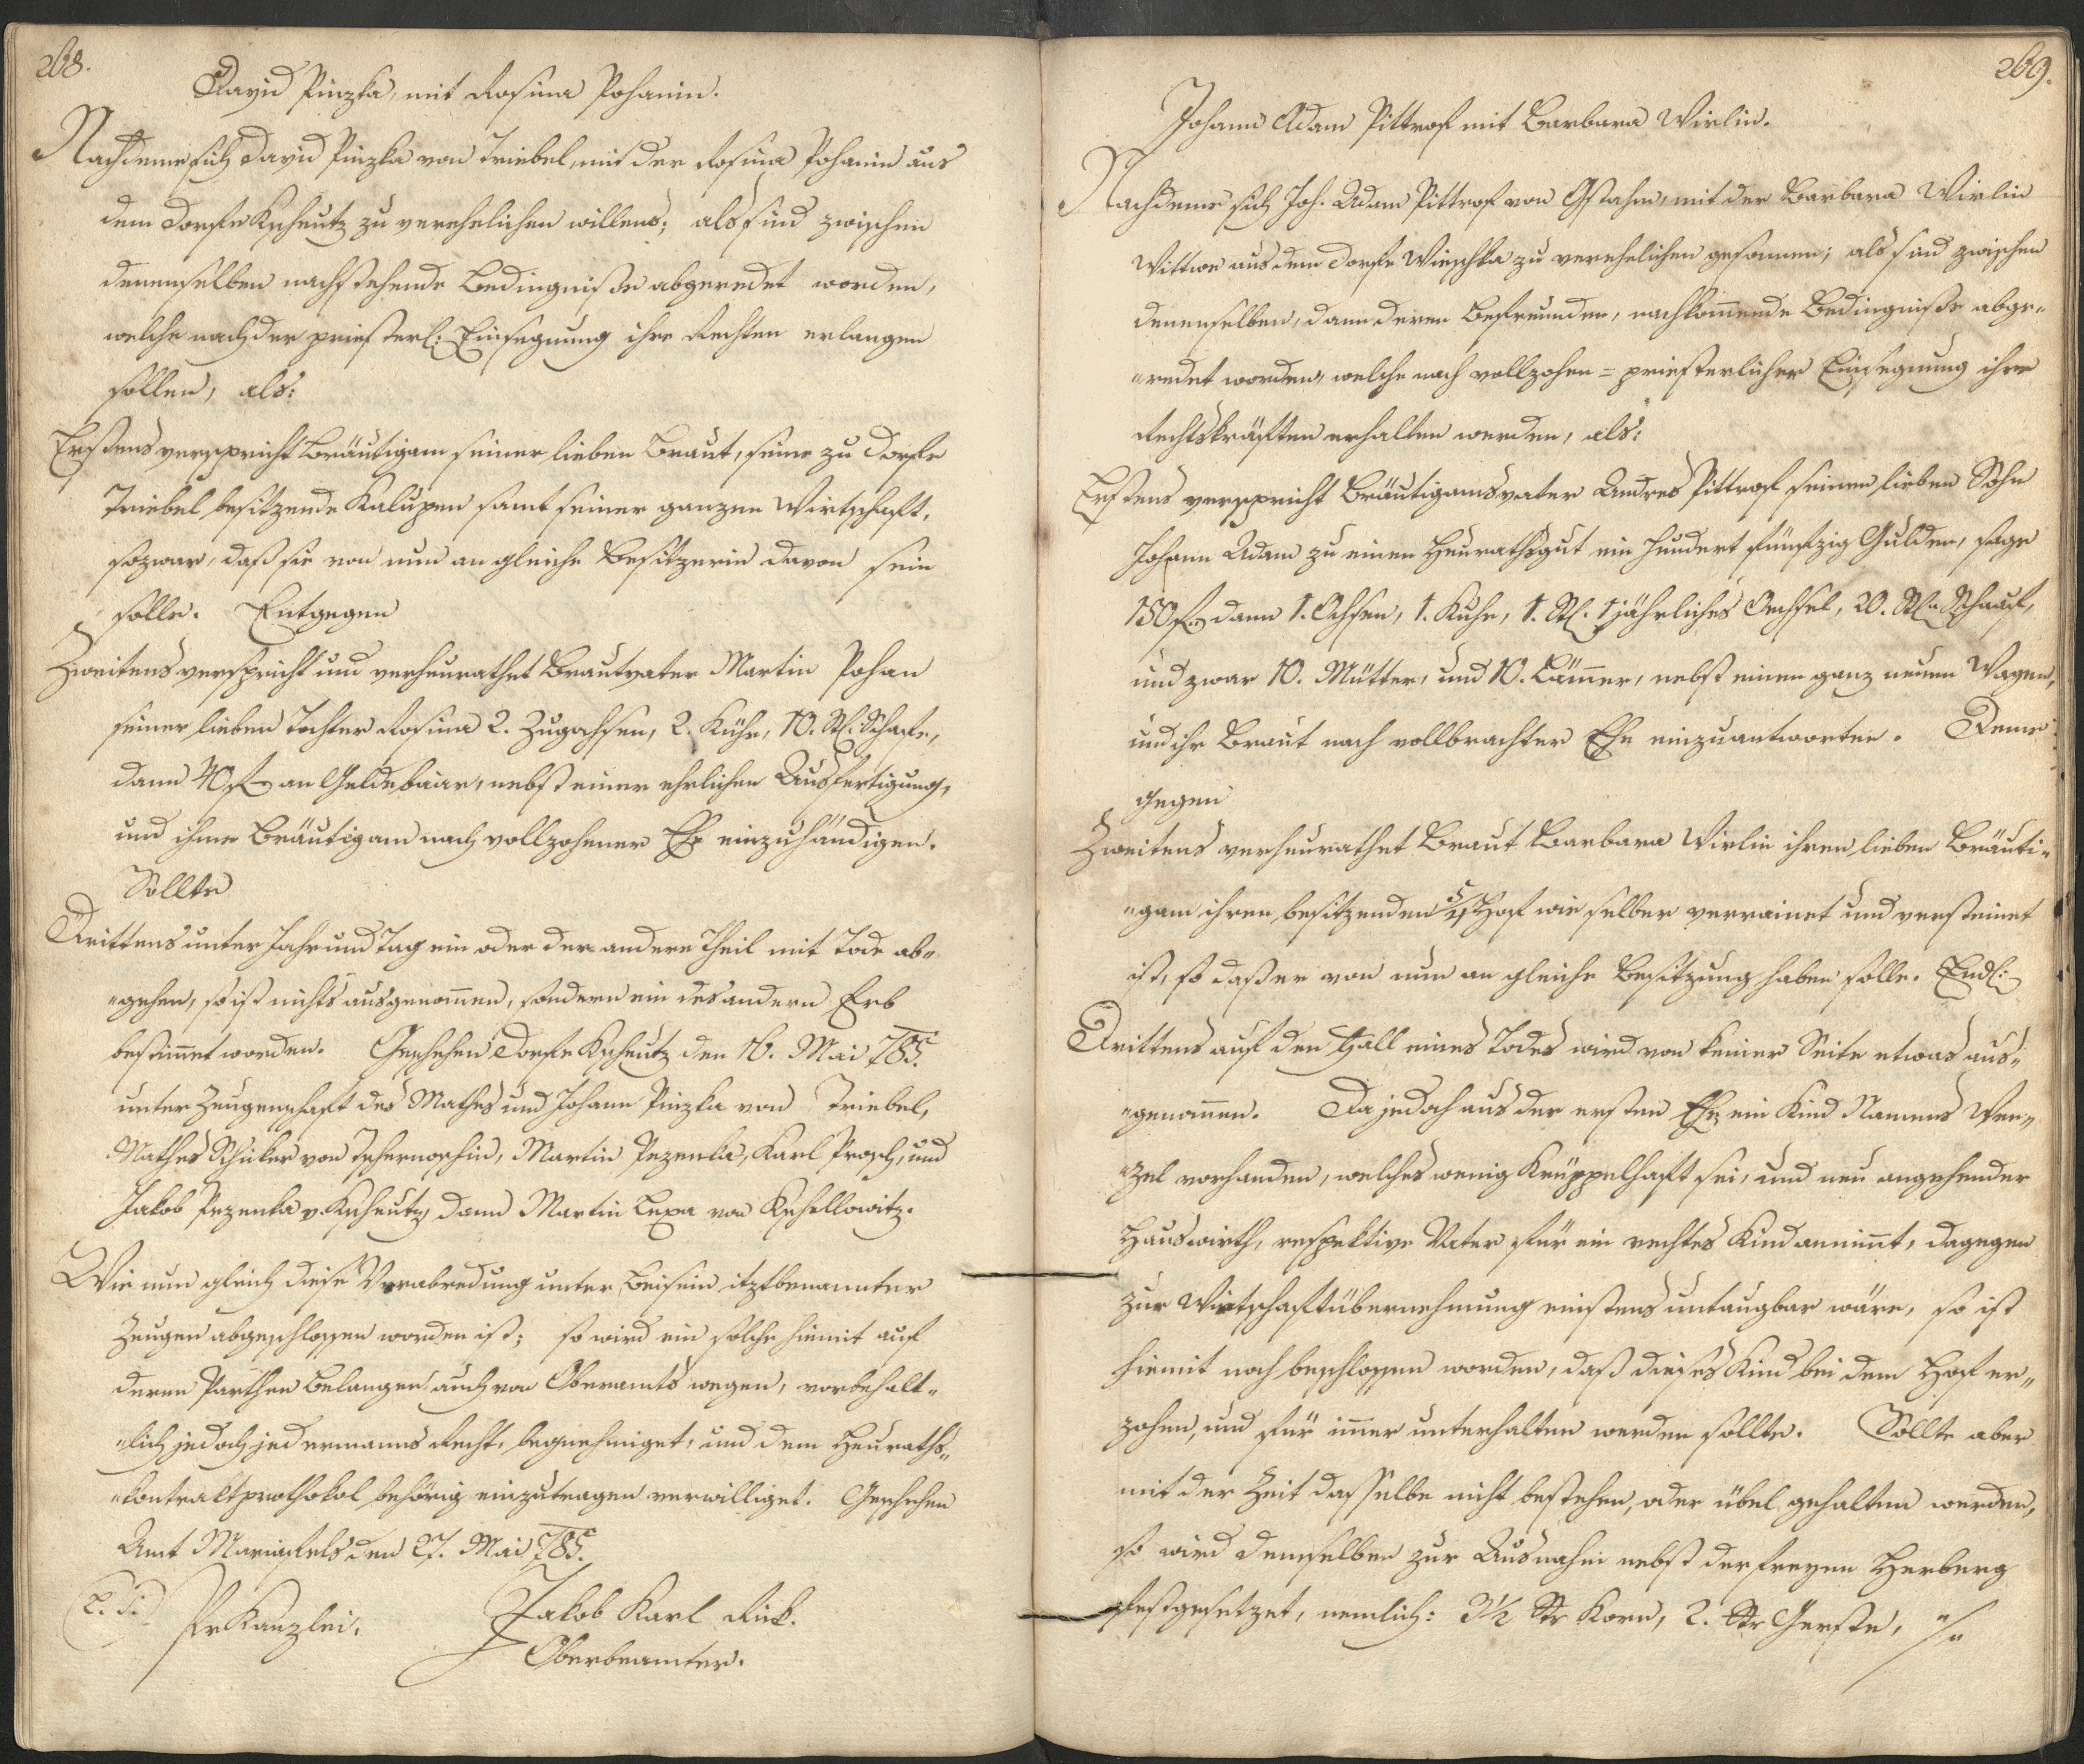 268.
David Pinzka, mit Rosina Pohanin.
Nachdeme sich David Pinzka von Triebel, mit der Rosina Pohanin aus
dem Dorfe Kscheutz zu verehelichen willens; als sind zwischen
denenselben nachstehende Bedingniße abgeredet worden,
welche nach der priesterl: Einsegnung ihre Rechten erlangen
sollen, als:
Erstens verspricht Bräutigam seiner lieben Braut, seine zu Dorfe
Triebel besitzende Kaluppen samt seiner ganzen Wirtschaft,
sozwar, daß sie von nun an gleiche Besitzerin davon sein
solle. Entgegen
Zweitens verspricht und verheurathet Brautvater Martin Pohan
seiner lieben Tochter Rosina 2. Zugochsen, 2. Kühe, 10. St: Schafe,
dann 40 f an Geldebaar, nebst einer ehrlichen Ausfertigung,
und ihme Bräutigam nach vollzohener Ehe einzuhändigen.
Sollte
Drittens unter Jahr und Tag ein oder der andere Theil mit Tode ab-
-gehen, so ist nichts ausgenommen, sondern ein des andern Erb
bestimmet worden. Geschehen Dorfe Kscheutz den 16. Mai 785.
unter Zeugenschaft des Mathes und Johann Pinzka von Triebel,
Mathes Schicker von Tschernoschin, Martin Pezenka, Karl Prosch, und
Jakob Pezenka v. Kscheutz, dann Martin Lexa von Kschellowitz.
Wie nun gleich diese Verabredung unter Beisein itztbenannter
Zeugen abgeschlossen worden ist; so wird ein solche hiemit auf
deren Parthen Belangen auch von Oberamts wegen, vorbehalt-
-lich jedoch jedermanns Recht, begnehmiget, und dem Heuraths-
-kontraktprothokol behörig einzutragen verwilliget. Geschehen
Amt Mariafels den 27. Mai 785.
(L. S.) Pr Kanzlei. Jakob Karl Rück.
Oberbeamter.
269.
Johann Adam Pittrof mit Barbara Wirlin.
Nachdeme sich Joh. Adam Pittrof von Gstahm, mit der Barbara Wirlin
Wittwe aus dem Dorfe Wieschka zu verehelichen gesonnen; als sind zwischen
denenselben, dann deren Befreunden, nachkommende Bedingniße abge-
-redet worden, welche nach vollzohen= priesterlicher Einsegnung ihre
Rechtskräften erhalten werden, als:
Erstens verspricht Bräutigamsvater Andres Pittrof seinen lieben Sohn
Johann Adam zu einen Heurathsgut ein hundert fünfzig Gulden, sage
150 f dann 1. Ochsen, 1. Kuhe, 1. St. 1 jährliches Oechsel, 20. St. Schaaf,
und zwar 10. Mütter, und 10. Lämmer, nebst einen ganz neuen Wagen,
und ihr Braut nach vollbrachter Ehe einzuantworten. Deme
gegen
Zweitens verheurathet Braut Barbara Wirlin ihren lieben Bräuti-
-gam ihren besitzenden Hof wie selber verrainet und versteinet
ist, so daß er von nun an gleiche Besitzung haben solle. Endl:
Drittens auf den Fall eines Todes wird von keiner Seite etwas aus-
-genommen. Da jedoch aus der ersten Ehe ein Kind Namens Wen-
-zel vorhanden, welches wenig Krüppelhaft sei, und neu angehender
Hauswirth, respektive Vater für ein rechtes Kind annimmt, dagegen
zur Wirtschaftübernehmung einstens untaugbar wäre, so ist
hiemit noch beschlossen worden, daß dieses Kind bei dem Hof er-
zohen, und für immer unterhalten werden sollte. Sollte aber
mit der Zeit dasselbe nicht bestehen, oder übel gehalten werden,
so wird demselben zur Ausnahm nebst der freyen Herberg
festgesetzet, nemlich: 3½ Str Korn, 2. Str Gerste, ./.